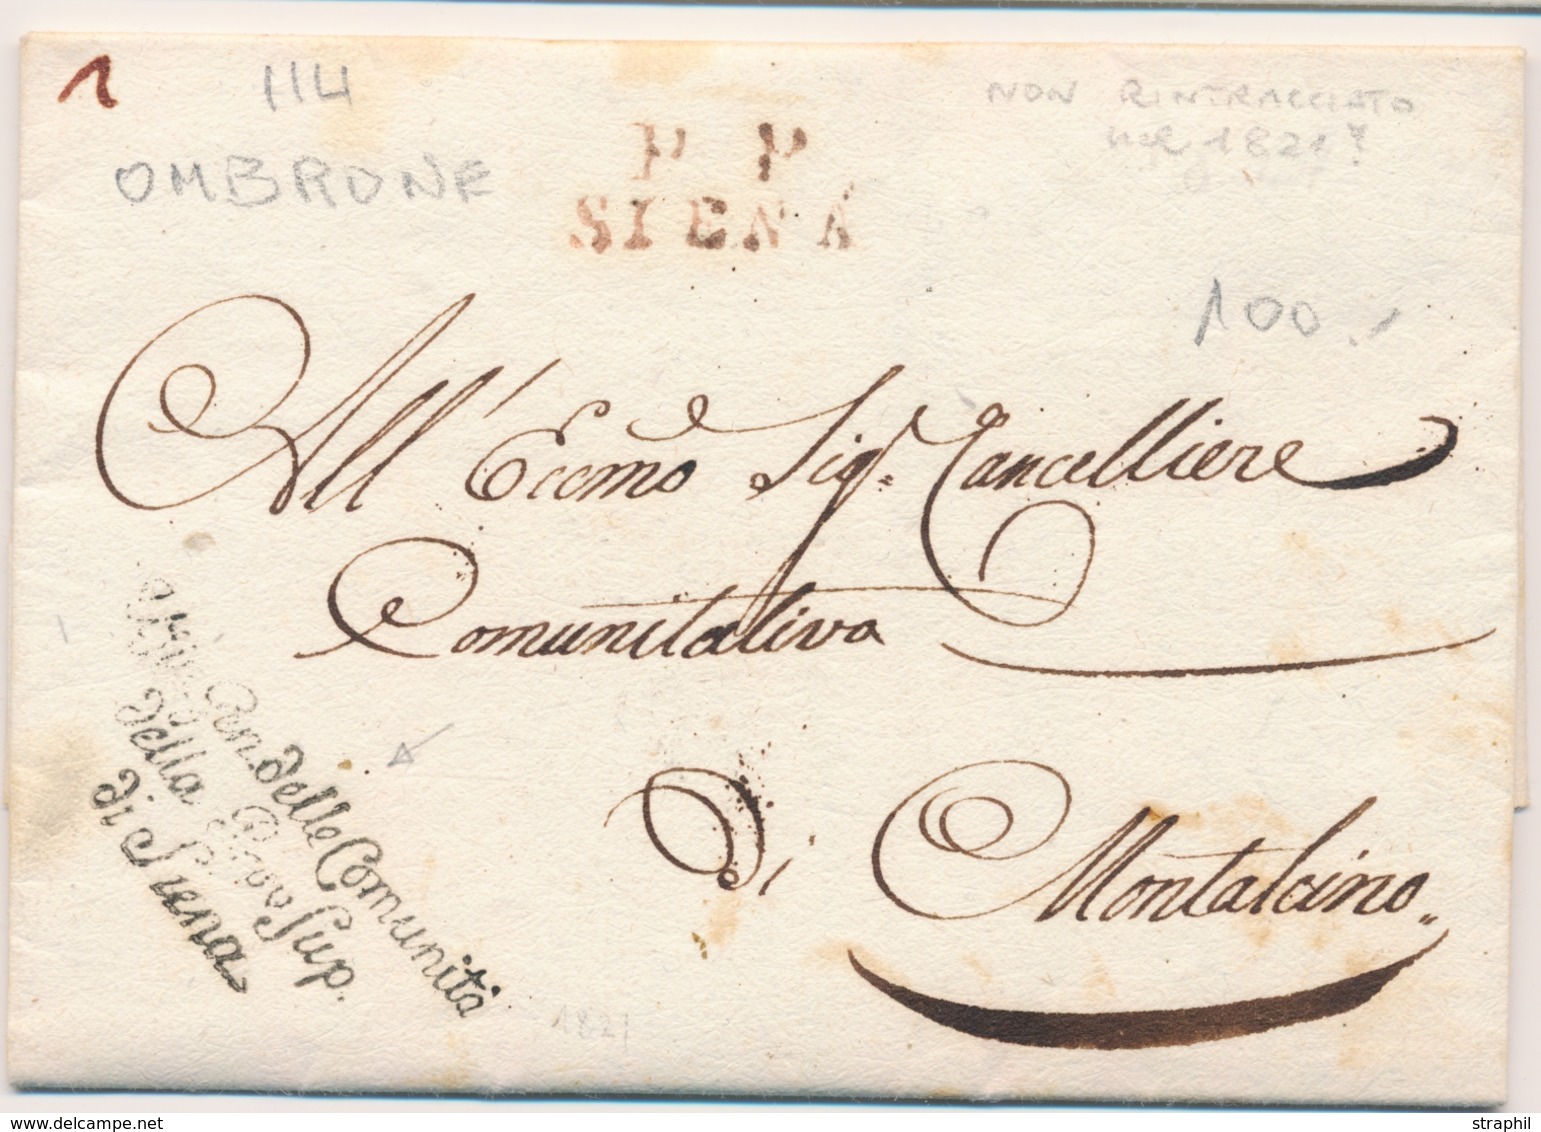 1
114
OMBRONE
P. P
SIENA
NON RINTRACCIATO
nel 1821?
100.-
All' Eccmo Sigr. Cancelliere
Comunitativo
di Montalcino
Gen. delle Comunità
della Prov Sup.
di Siena
1821
www.delcampe.net
straphil